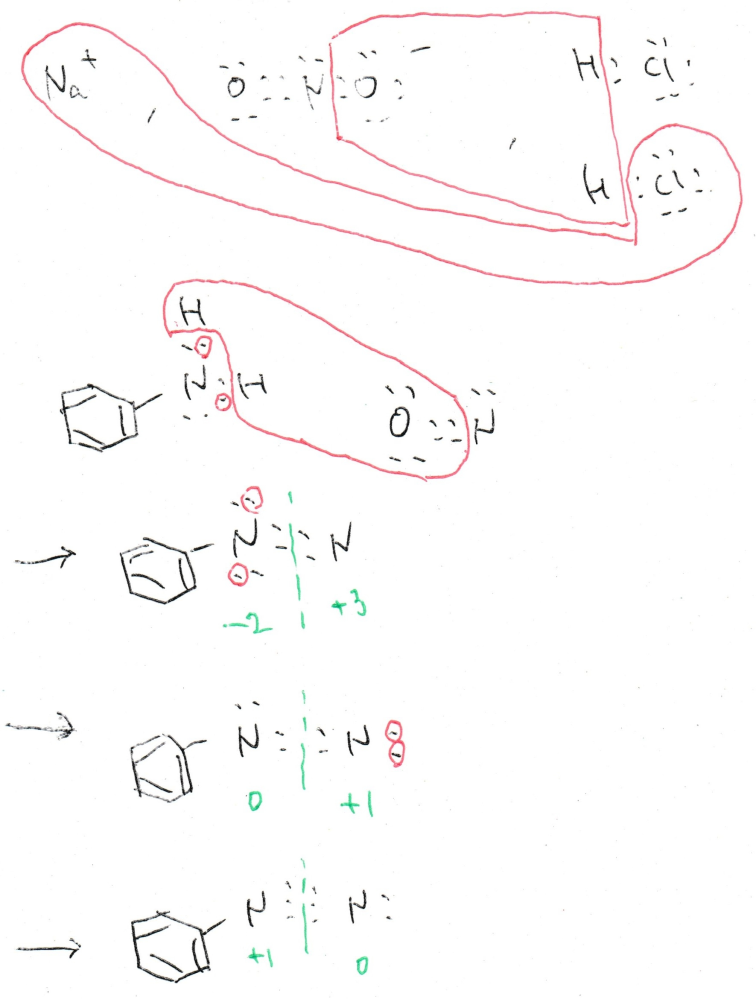 Na⁺ , O N O ⁻ , H Cl
H Cl
H
N H O N
→ N N
-2 +3
→ N N
0 +1
→ N N
+1 0